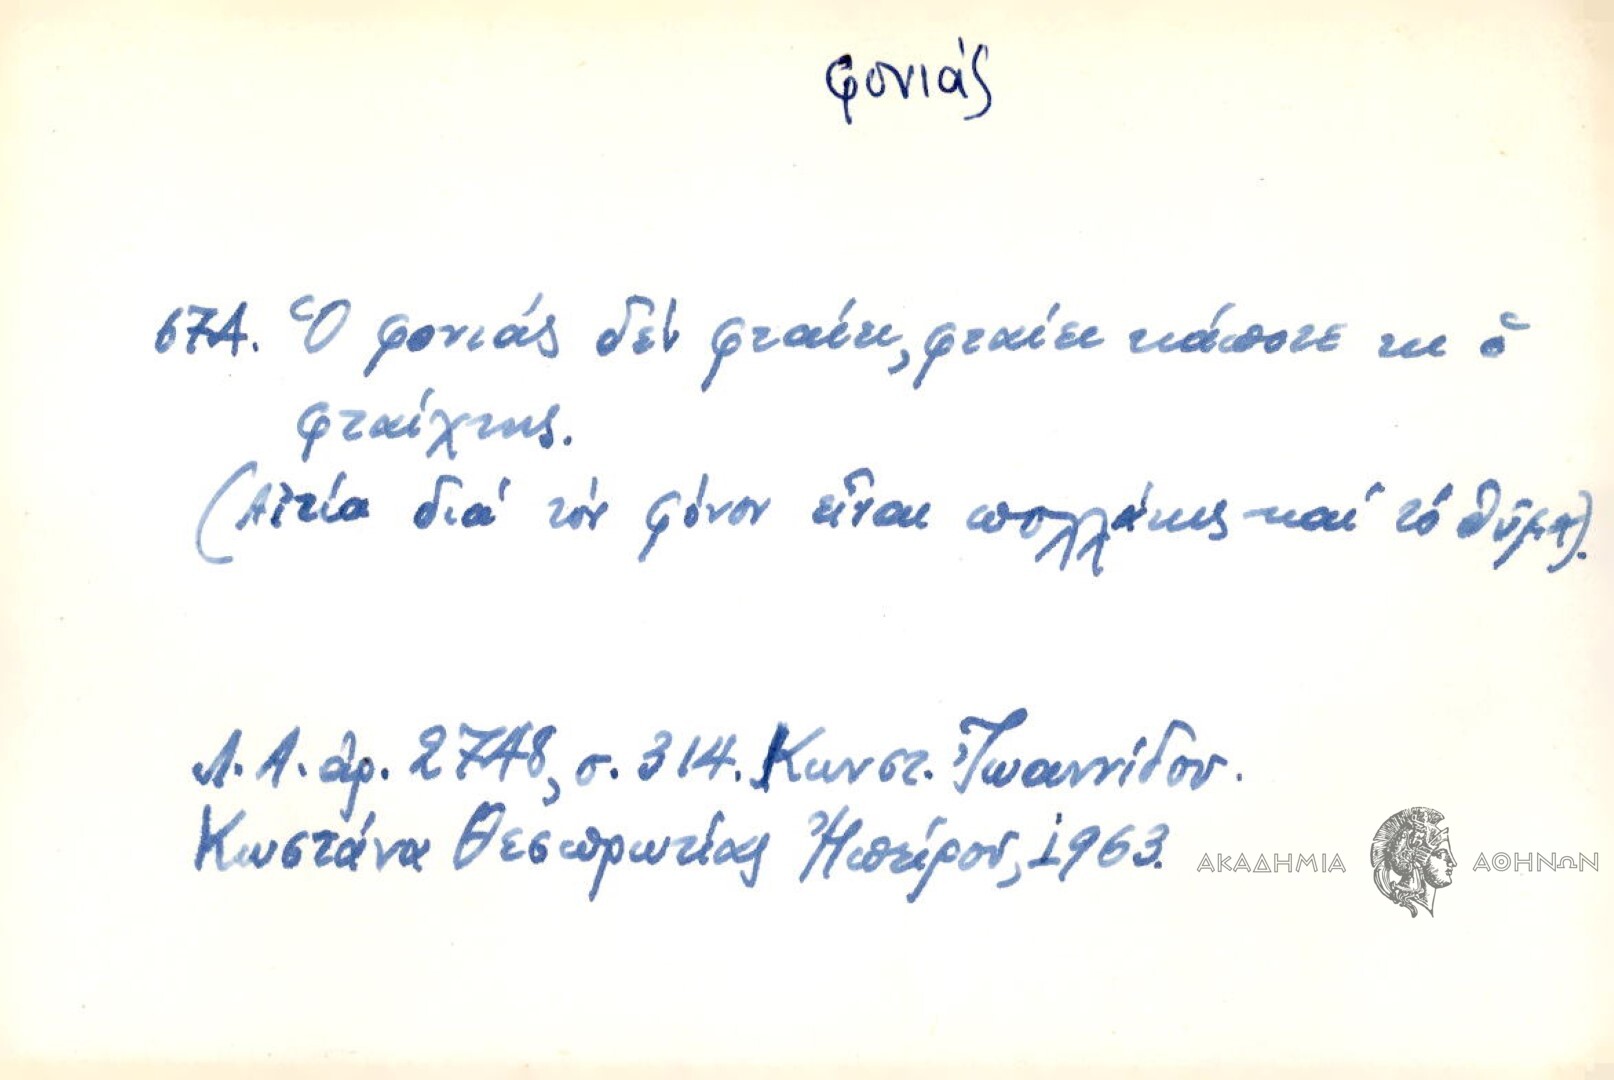 φονιάς
674. Ὁ φονιάς δέν φταίει, φταίει κάποτε κι ὁ
φταίχτης.
(Αἰτία διά τόν φόνον εἶναι πολλάκις καί τό θῦμα).
Λ.Α. ἀρ. 2748, σ. 314. Κωνστ. Ἰωαννίδου.
Κωστάνα Θεσπρωτίας Ἠπείρου, 1963.
ΑΚΑΔΗΜΙΑ ΑΘΗΝΩΝ